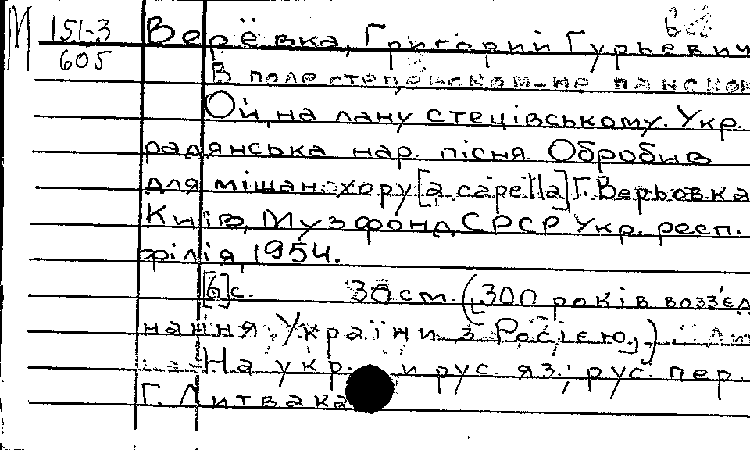 М 151-3 Верёвка, Григорий Гурьевич
605 В поле стецівском-не панском
Ой, на лану стецівському. Укр.
радянська нар. пісня Обробив
для мішан. хору [a capella] Г. Верьовка
Київ, Музфонд СРСР Укр. респ.
філія, 1954.
[6] с. 30 см. (300 років возз'єд
нання України з Росією.)
На укр. и рус. яз.; рус. пер.
Г. Литвака